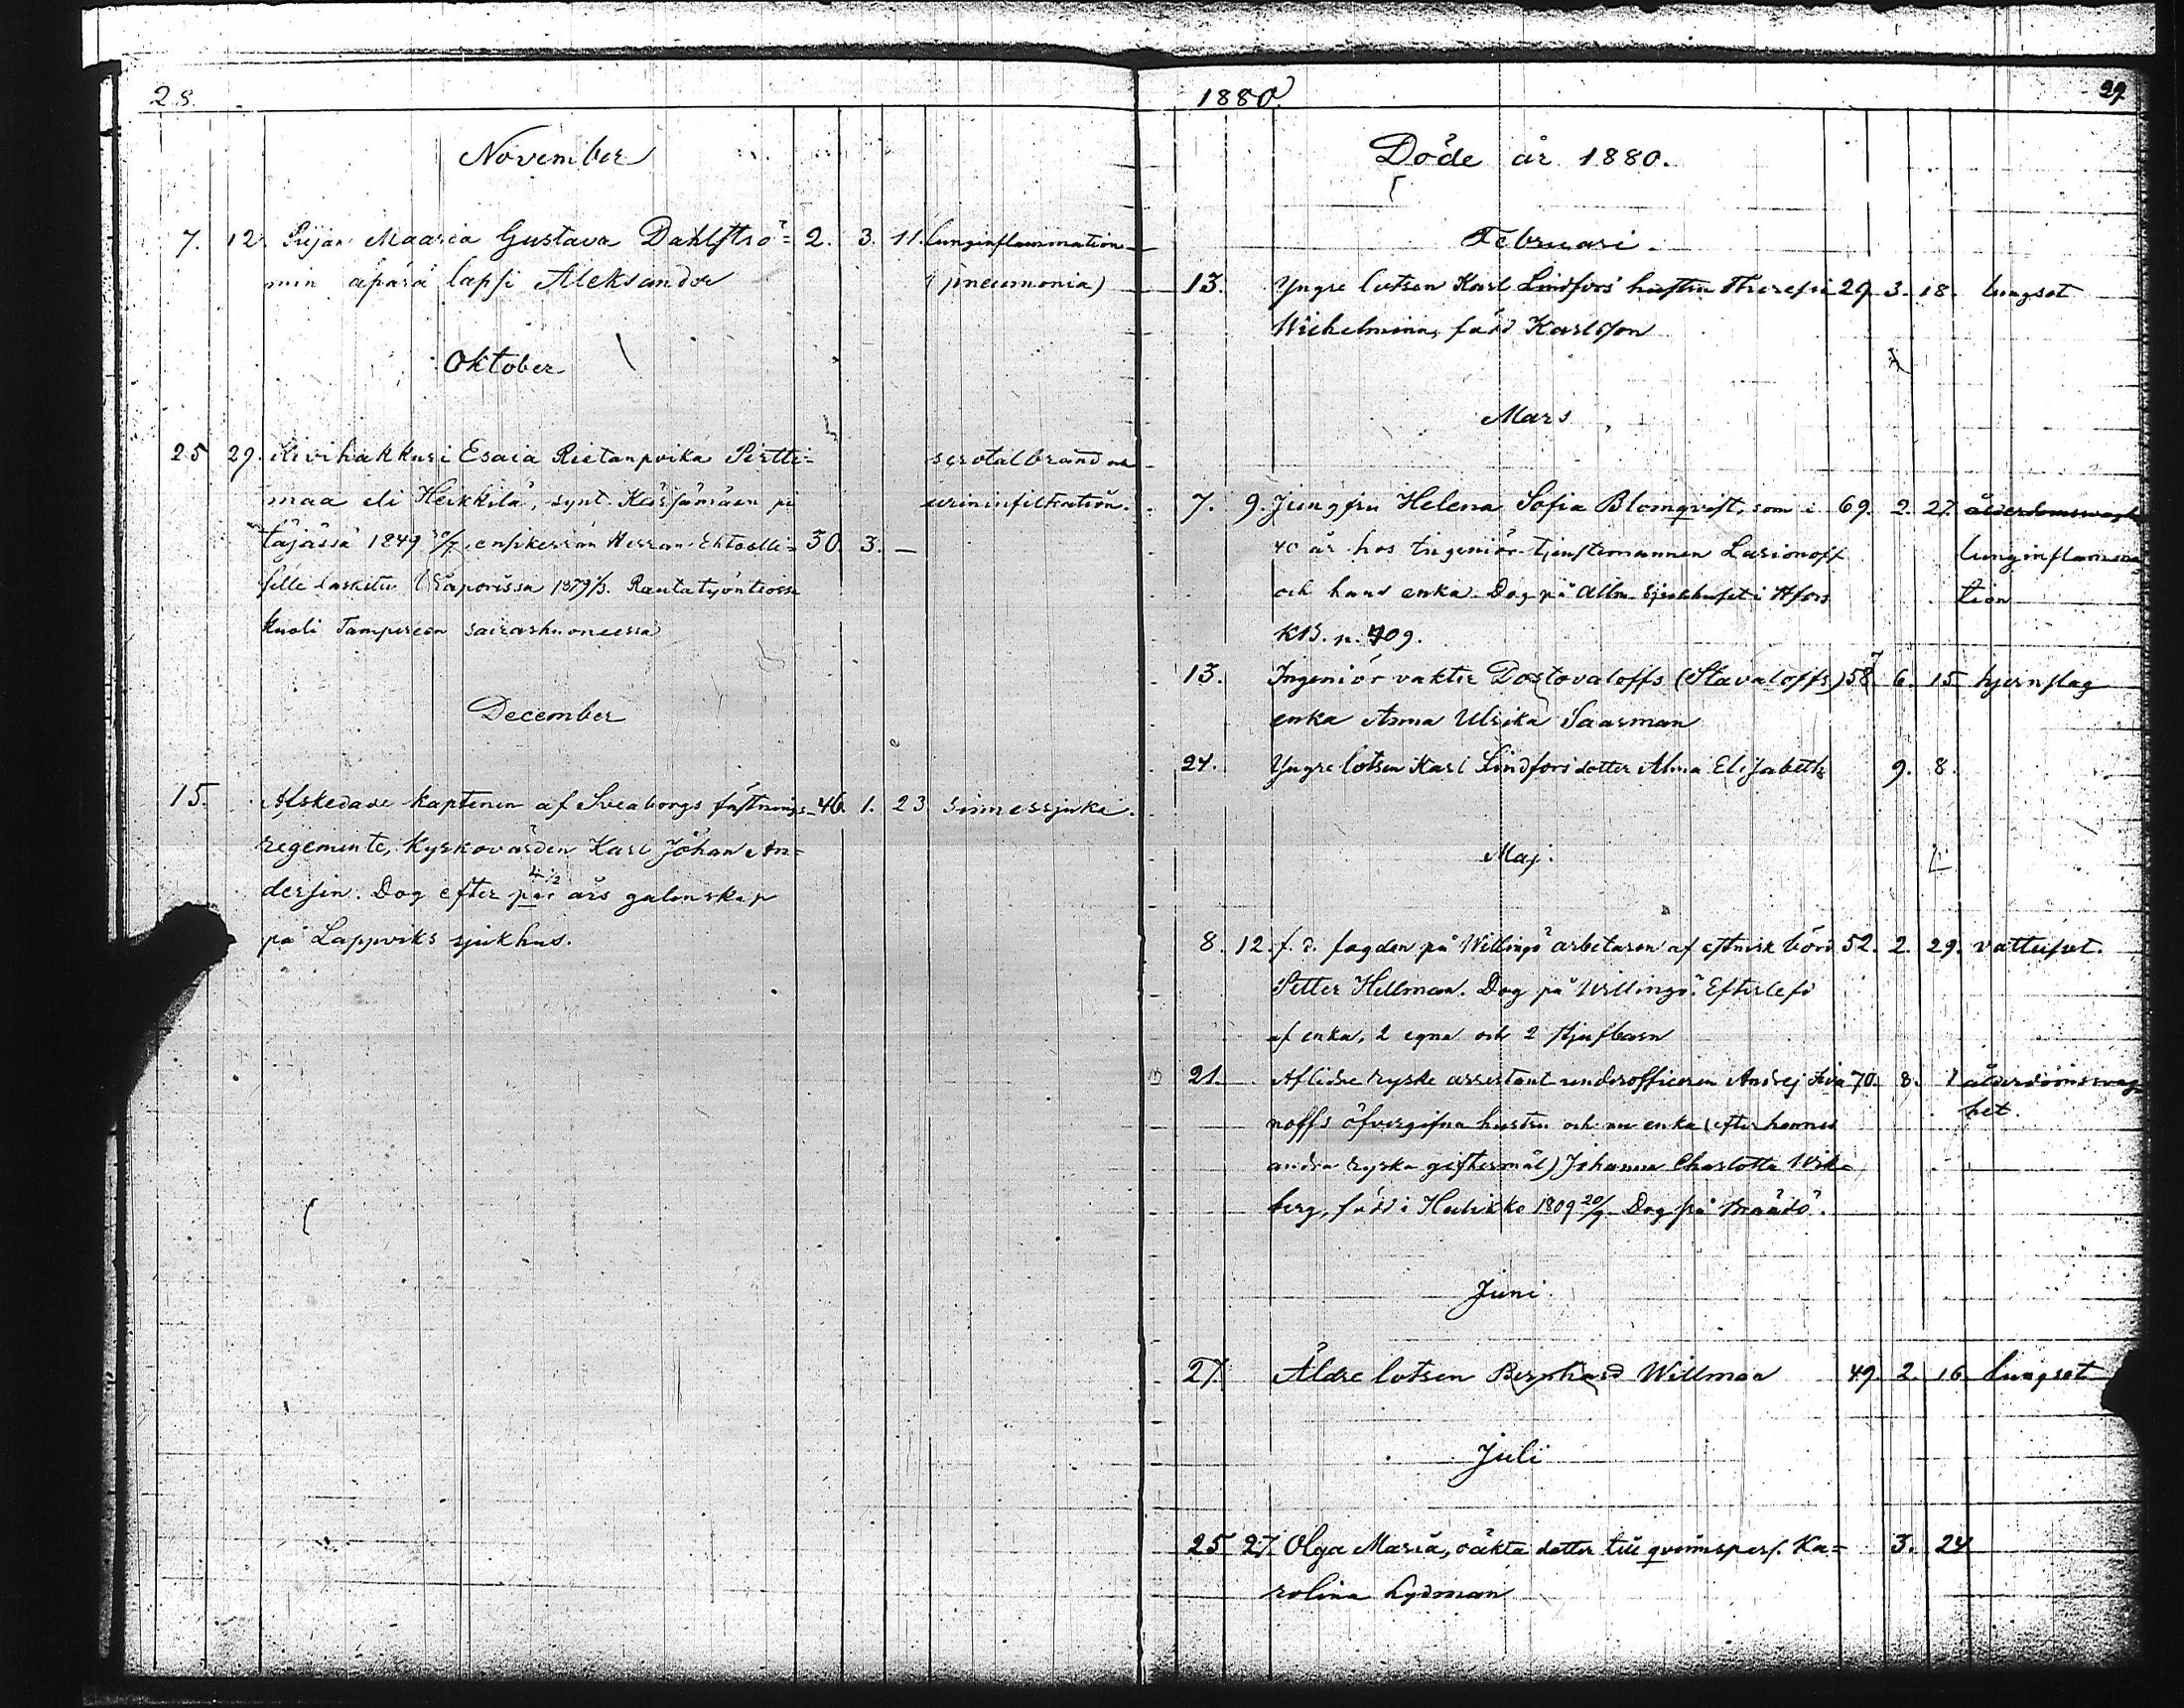 28.
November
7. 12. Piijan Maaria Gustava Dahlströ= 2. 3. 11. lunginflammation
min äpärä lapsi Aleksander (pneumonia)
Oktober
25 29. Kivihakkuri Esaia Rietanpoika Pirtti= scrotalbrand och
maa eli Heikkilä, synt. Kärsämäen pi urininfiltration.
täjässä 1849 enfikerran Herran Ehtoolli= 30. 3. —
selle laskettu Viaporissa 1879. Rautatyönteossa
kuoli Tampereen sairashuoneessa
December
15. Afskedade kaptenen af Sveaborgs fästnings- 46. 1. 23 sinnessjuka.
regemente, kyrkovärden Karl Johan An=
dersin. Dog efter par 4 1/2 års galenskap
på Lappviks sjukhus.
1880. 29
Döde år 1880.
Februari.
13. Yngre lotsen Karl Lindfors' hustru Theresia 29. 3. 18. lungsot
Wilhelmina, född Karlsson
Mars
7. 9. Jungfru Helena Sofia Blomqvist, som i 69. 2. 27. ålderdomssvaghet
40 år hos Ingeniör-tjenstemannen Larionoff lunginflamma
och hans enka. Dog på Allm. Sjukhuset i Hfors tion
KB. p. 409.
13. Ingeniör vakter Dostovaloffs (Stavaloffs) 58 6. 15 hjernslag
enka Anna Ulrika Saarman
24. Yngre lotsen Karl Lindfors' dotter Alma Elisabeth 9. 8.
Maj.
8. 12. f. d. fogden på Willingö arbetaren af estnisk börd 52. 2. 29. vattusot.
Petter Hillman. Dog på Willingö. Efterlefd
af enka, 2 egna och 2 styfbarn
21. Aflidne ryske assistent-underofficeren Andrej Iva 70. 8. 1 ålderdomssvag
noffs öfvergifna hustru och nu enka (efter hennes het.
andra ryska giftermål) Johanna Charlotta Wik=
berg, född i Halikko 1809 20/9. Dog på
Juni.
27. Äldre lotsen Bernhard Willman 49. 2. 16. lungsot
Juli
25 27. Olga Maria, oäkta dotter till qvinnspers. Ka= 3. 24
rolina Lydman